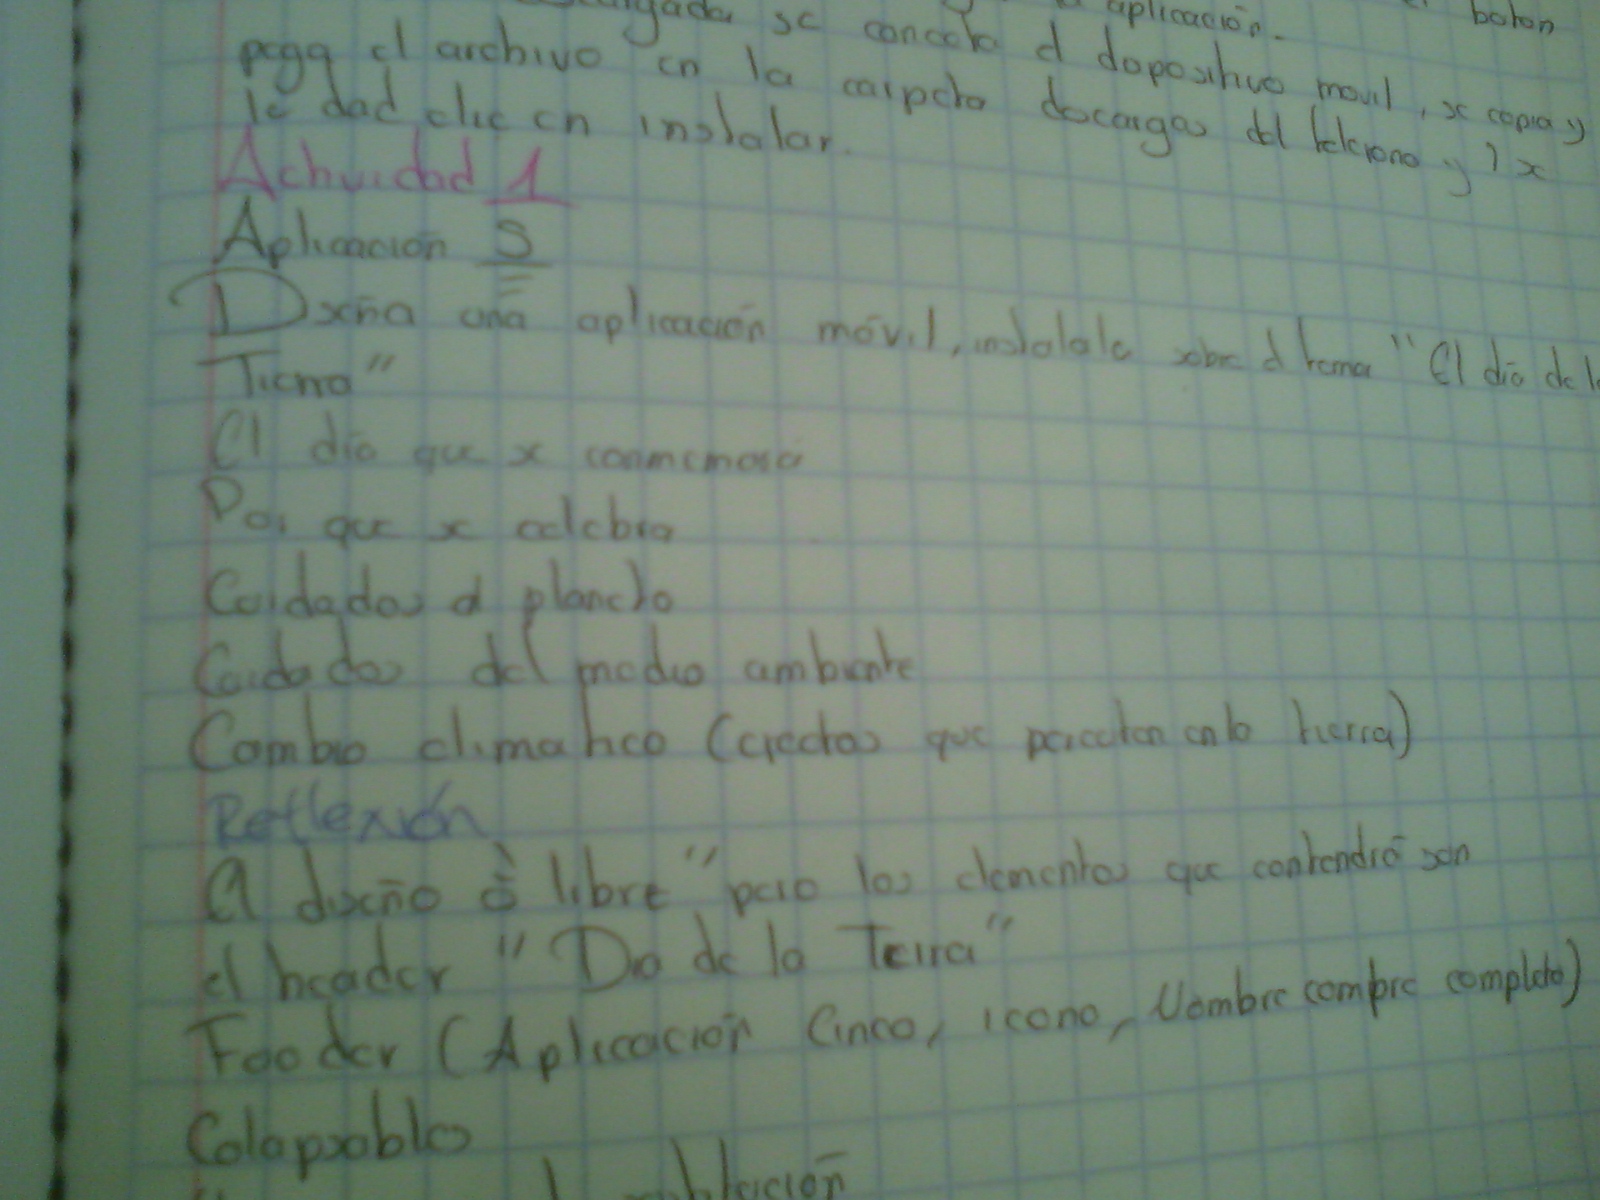 se conecta el dopositivo movil, se copia y
aplicación. boton
pega el archivo en la carpeta descargas del telefono y se
le dad clic en instalar.
Actividad 1
Aplicación 5
Diseña una aplicación móvil, instalala sobre el tema "El día de la
Tierra"
El día que se conmemora
Por que se celebra
Cuidados el planeto
Cuidados del medio ambiente
Cambio climatico (efectos que percuten en la tierra)
Reflexión
El diseño é libre "pero los elementos que contendrá son
el header "Dia de la Tierra"
Fooder (Aplicación Cinco, icono, Nombre compre completo)
Colapsables